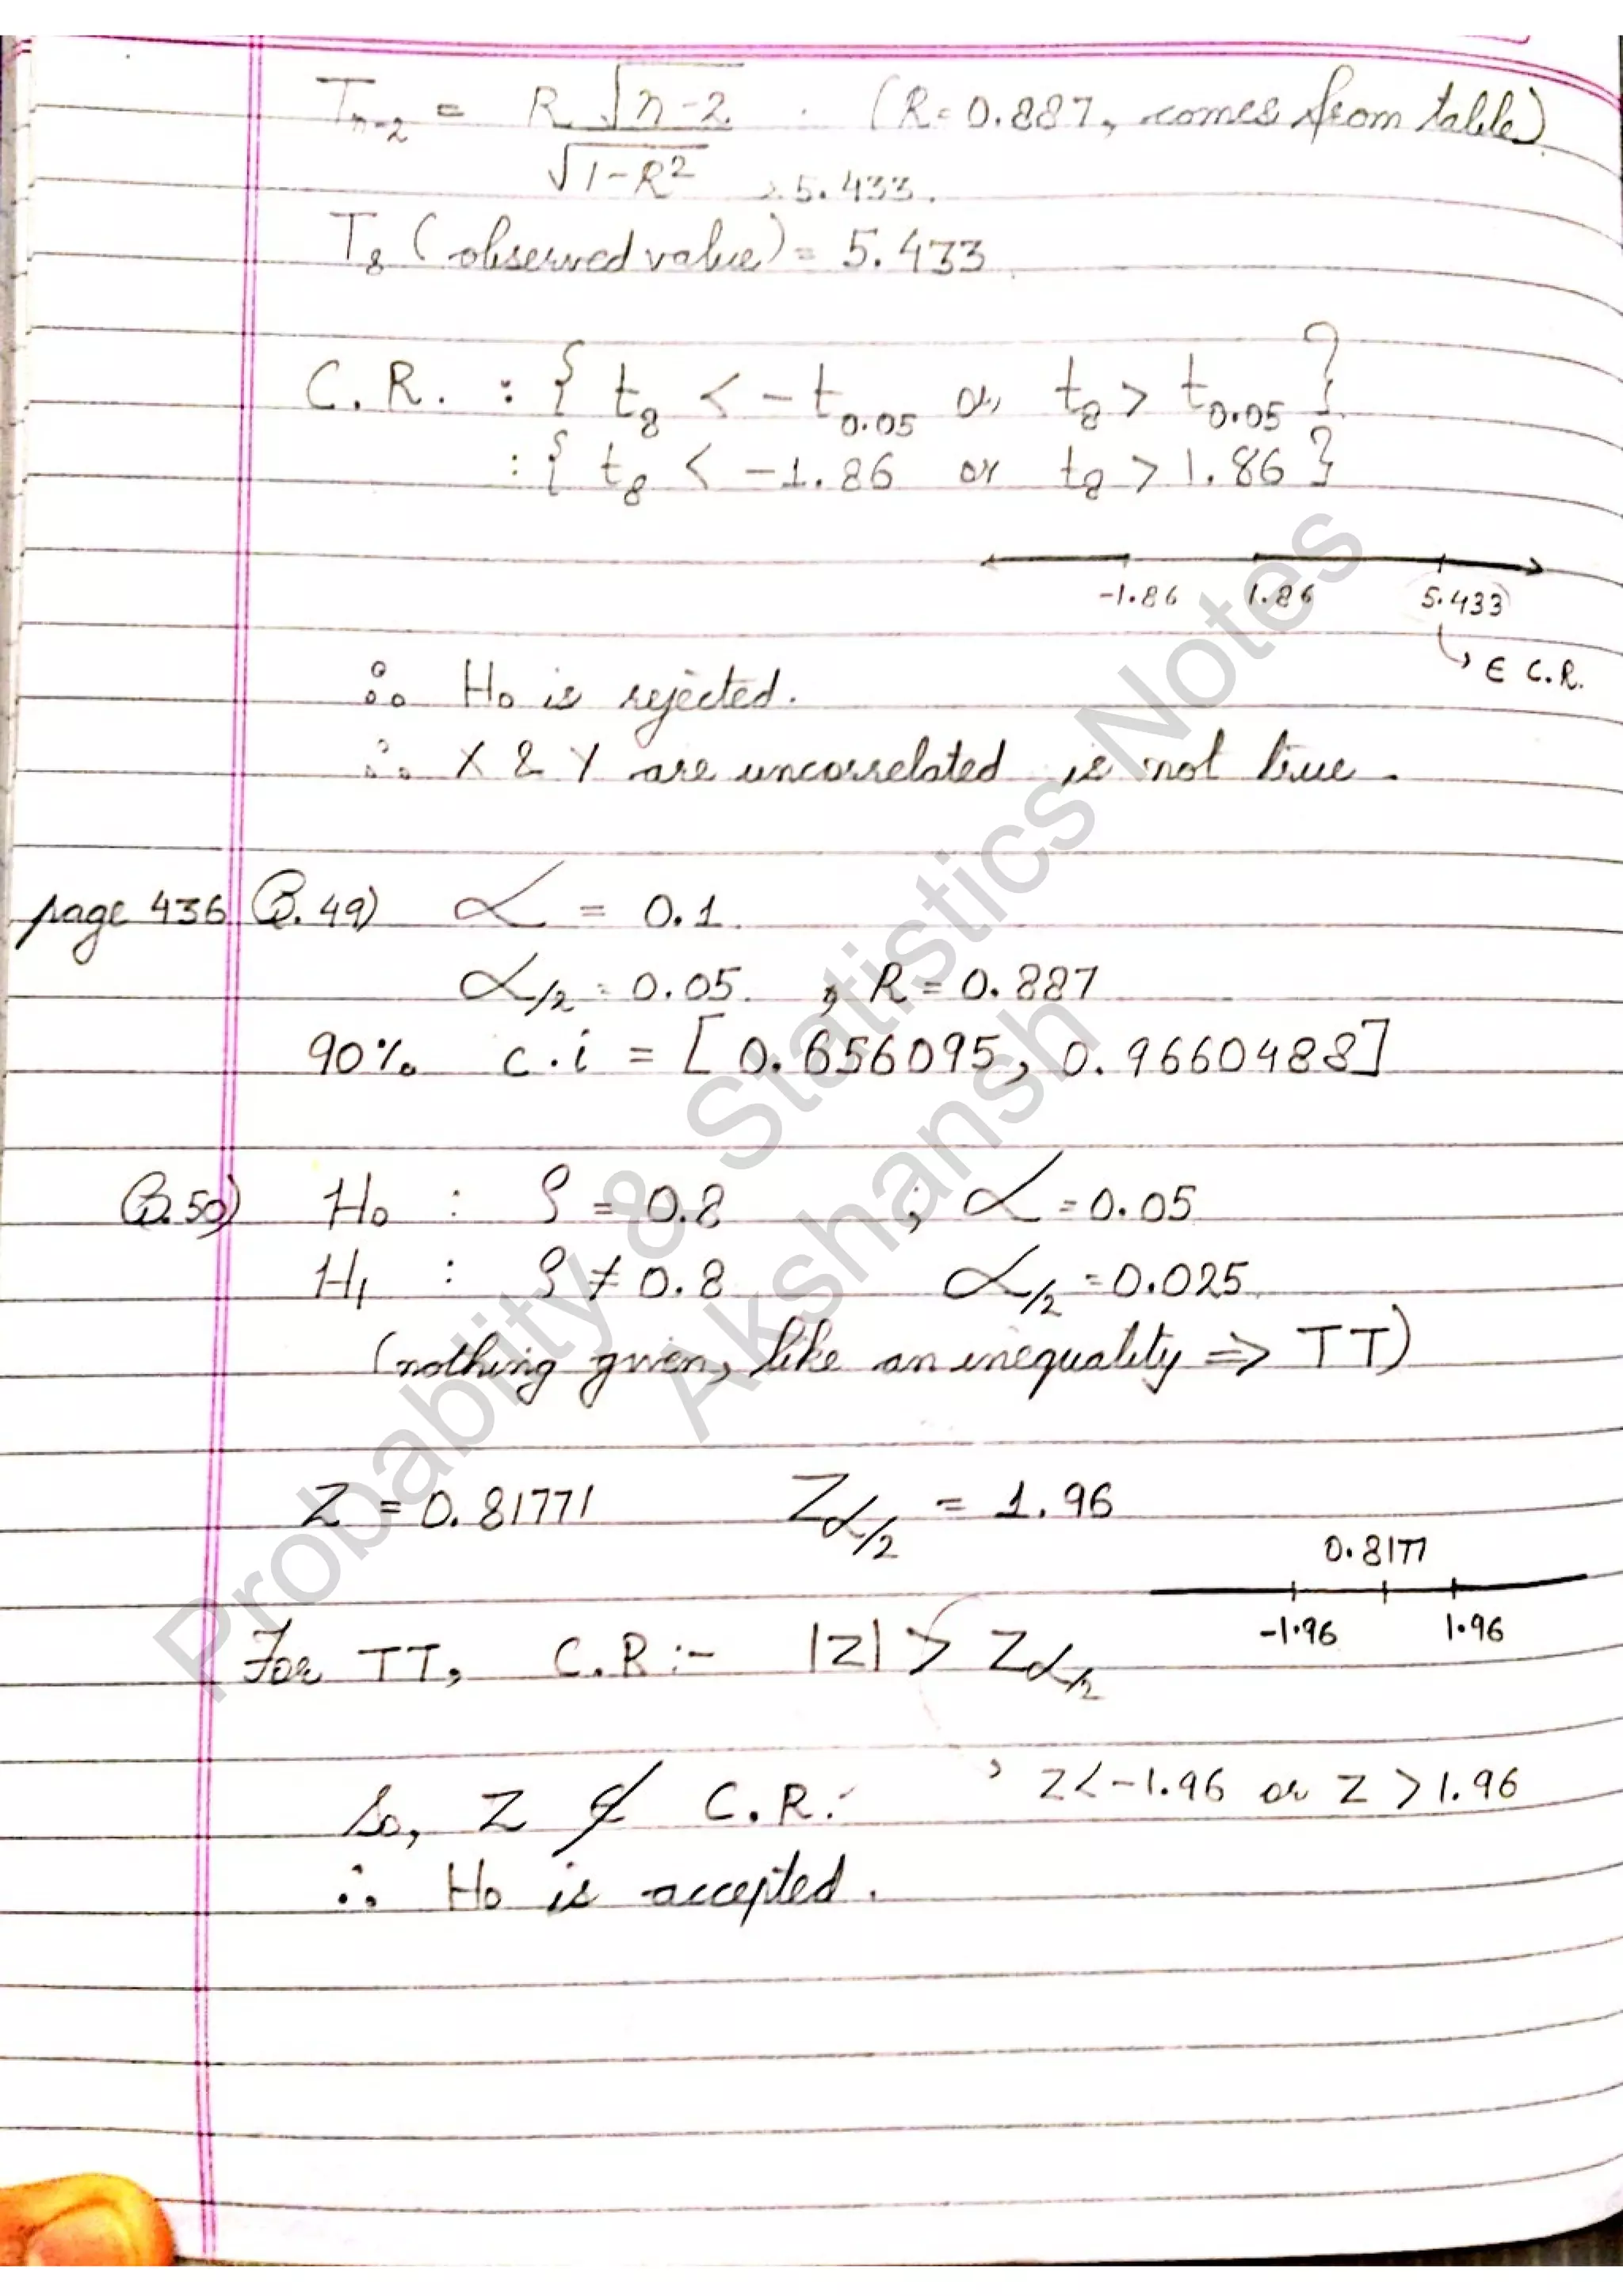 T n-2 = R √n-2 / √1-R² (R = 0.887, comes from table)
= 5.433.
T8 (observed value) = 5.433
C.R. : { t8 < -t0.05 or t8 > t0.05 }
: { t8 < -1.86 or t8 > 1.86 }
-1.86 1.86 5.433
↳ ∈ C.R.
∴ H0 is rejected.
∴ X & Y are uncorrelated is not true.
page 436 Q.49) α = 0.1
α/2 = 0.05 , R = 0.887
90% c.i = [0.656095, 0.9660488]
Q.50) H0 : ρ = 0.8 ; α = 0.05
H1 : ρ ≠ 0.8 α/2 = 0.025
(nothing given, like an inequality => TT)
Z = 0.81771 Zα/2 = 1.96
0.8177
-1.96 1.96
For TT, C.R :- |Z| > Zα/2
Z < -1.96 or Z > 1.96
So, Z ∉ C.R.
∴ H0 is accepted.
Probablity & Statistics Notes
Akshansh